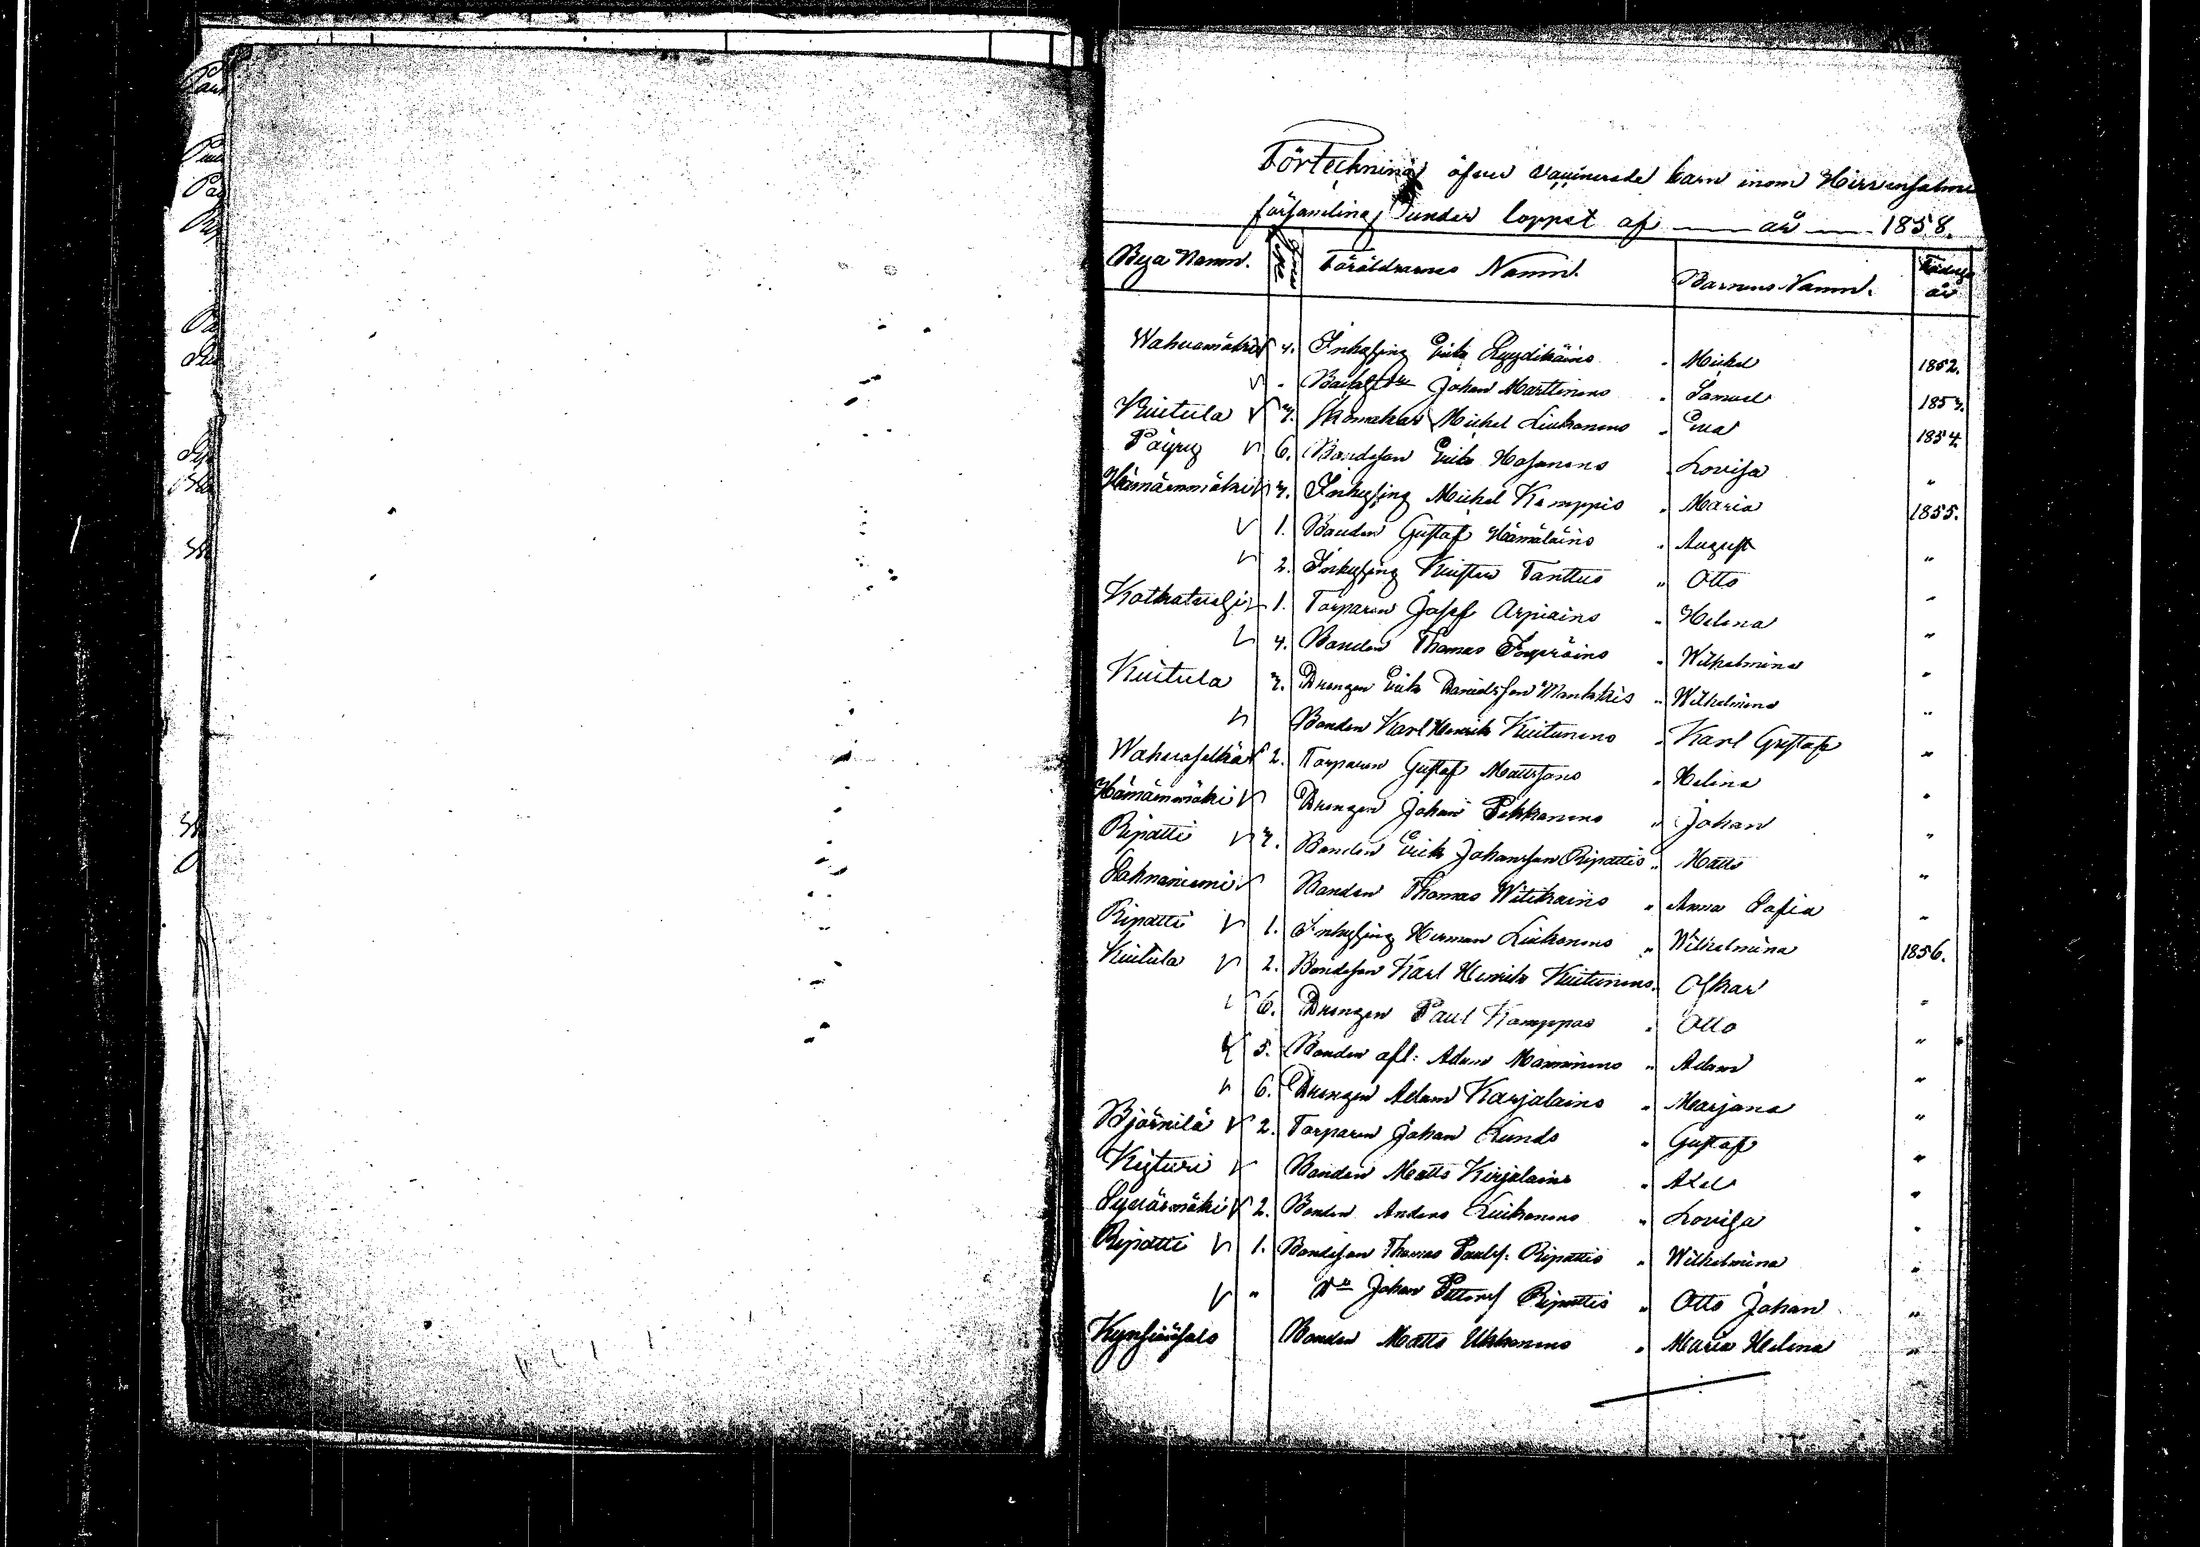 Förteckning öfver vaccinerade barn inom Hirvensalmi
församling under loppet af — år — 1858.
Bya Namn. Föräldrarnes Namn. Barnens Namn. Födelse år
Wahvamäki 4. Inhysing Erik Lyydikäins " Michel 1852.
" Johan Marttinens " Samuel 1853.
Kuitula 3. Skomakar Michel Liukonens " Eva 1854.
Päyry 6. Bondeson Erik Hosanens " Lovisa "
Hämäenmäki 3. Inhysing Michel Kamppis " Maria 1855.
1. Bonden Gustaf Hämäläins " August "
2. Inhysing Tanttus " Otto "
1. Torparen Josef Arpiains " Helena "
4. Bonden Thomas " Wilhelmina "
Kuitula 3. Drengen Erik Danielsson " Wilhelmina "
Bonden Karl Henrik Kuitunens " Karl Gustaf "
Wahvaselkä 2. Torparen Gustaf Mattsons " Helena "
Hämäenmäki Drengen Johan Pekkanens " Johan "
Ripatti 3. Bonden Erik Johansson Ripattis " Matts "
Lahnaniemi Bonden Thomas Witikains " Anna Sofia "
Ripatti 1. Inhysing Herman Liukonens " Wilhelmina 1856.
Kuitula 2. Bondeson Karl Henrik Kuitunens " Oskar "
6. Drengen Paul Kamppas " Otto "
5. Bonden afl: Adam Manninens " Adam "
6. Drengen Adam Karjalains " Marjana "
Björnilä 2. Torparen Johan Lunds " Gustaf "
Kyturi Bonden Matts Kirjalains " Axel "
Syväsmäki 2. Bonden Anders Liukonens " Lovisa "
Ripatti 1. Bondeson Thomas Paulss: Ripattis " Wilhelmina "
" Do Johan Petterss Ripattis " Otto Johan "
Kynsiäsalo Bonden Matts Ukkonens " Maria Helena "